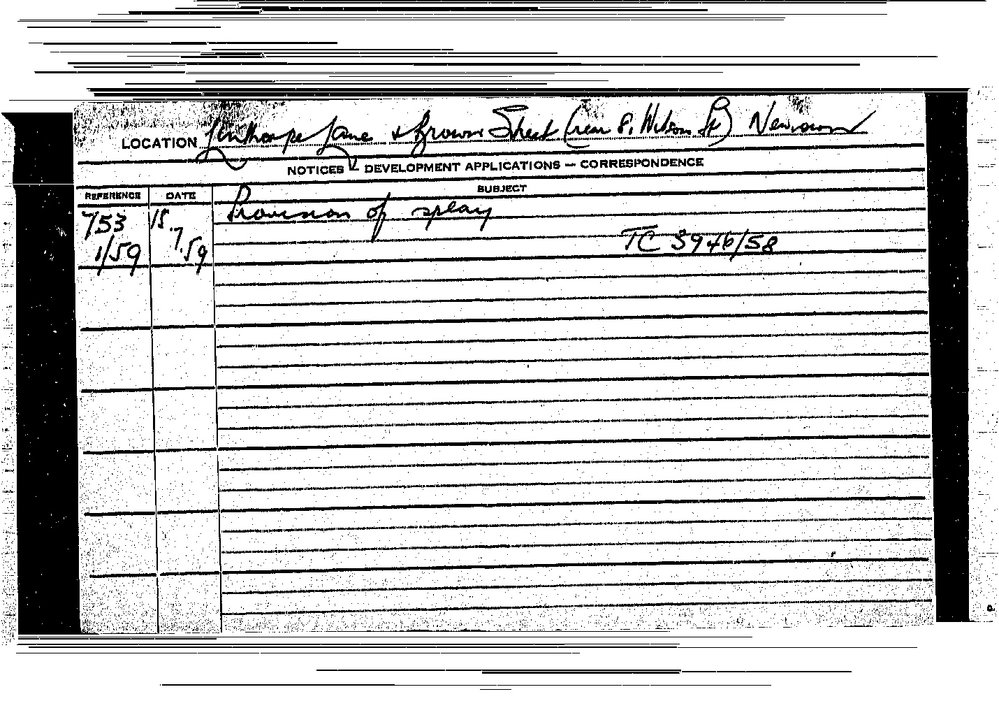 LOCATION Linthorpe Lane & Brown Street (rear 8. Wilson St) Newtown
NOTICES – DEVELOPMENT APPLICATIONS – CORRESPONDENCE
REFERENCE DATE SUBJECT
753 15. Provision of splay
1/59 7.59 TC 3946/58